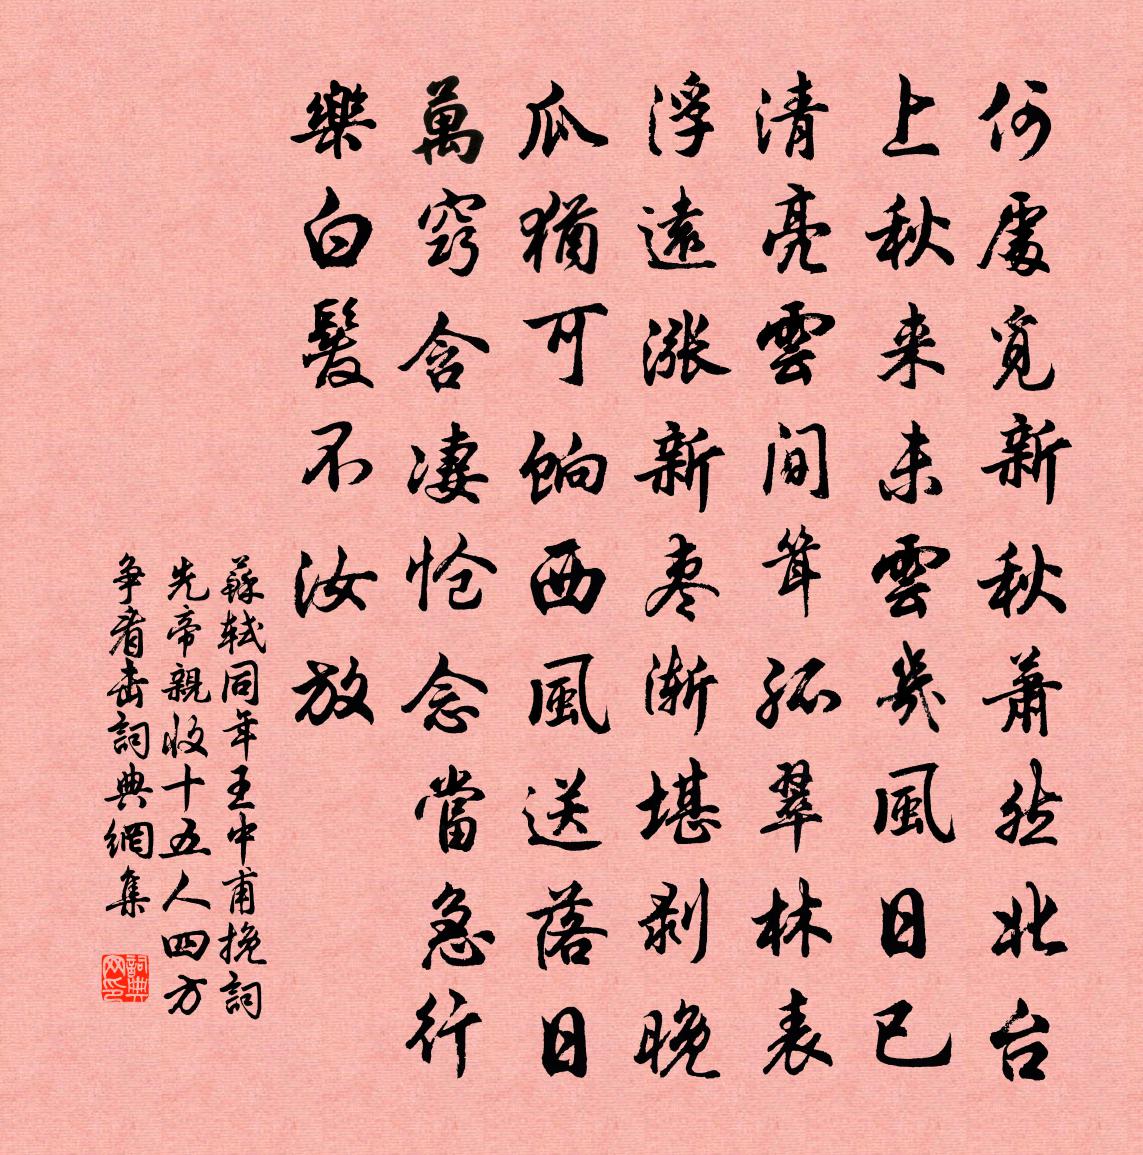 何處覓新秋蕭然北台
上秋来未雲幾風日已
清亮雲間聳孤翠林表
浮遠漲新棗漸堪剥晚
瓜猶可餉西風送落日
萬竅含凄愴念當急行
樂白髮不汝放
蘇軾同年王中甫挽詞
先帝親收十五人四方
争看击詞典網集
詞典网印